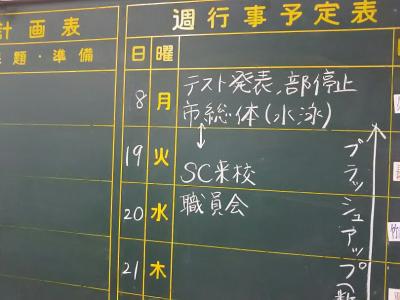 計画表
題・準備
週行事予定表
日 曜
8 月 テスト発表、部停止
市総体(水泳)
19 火 SC来校
20 水 職員会
21 木
ブラッシュアップ